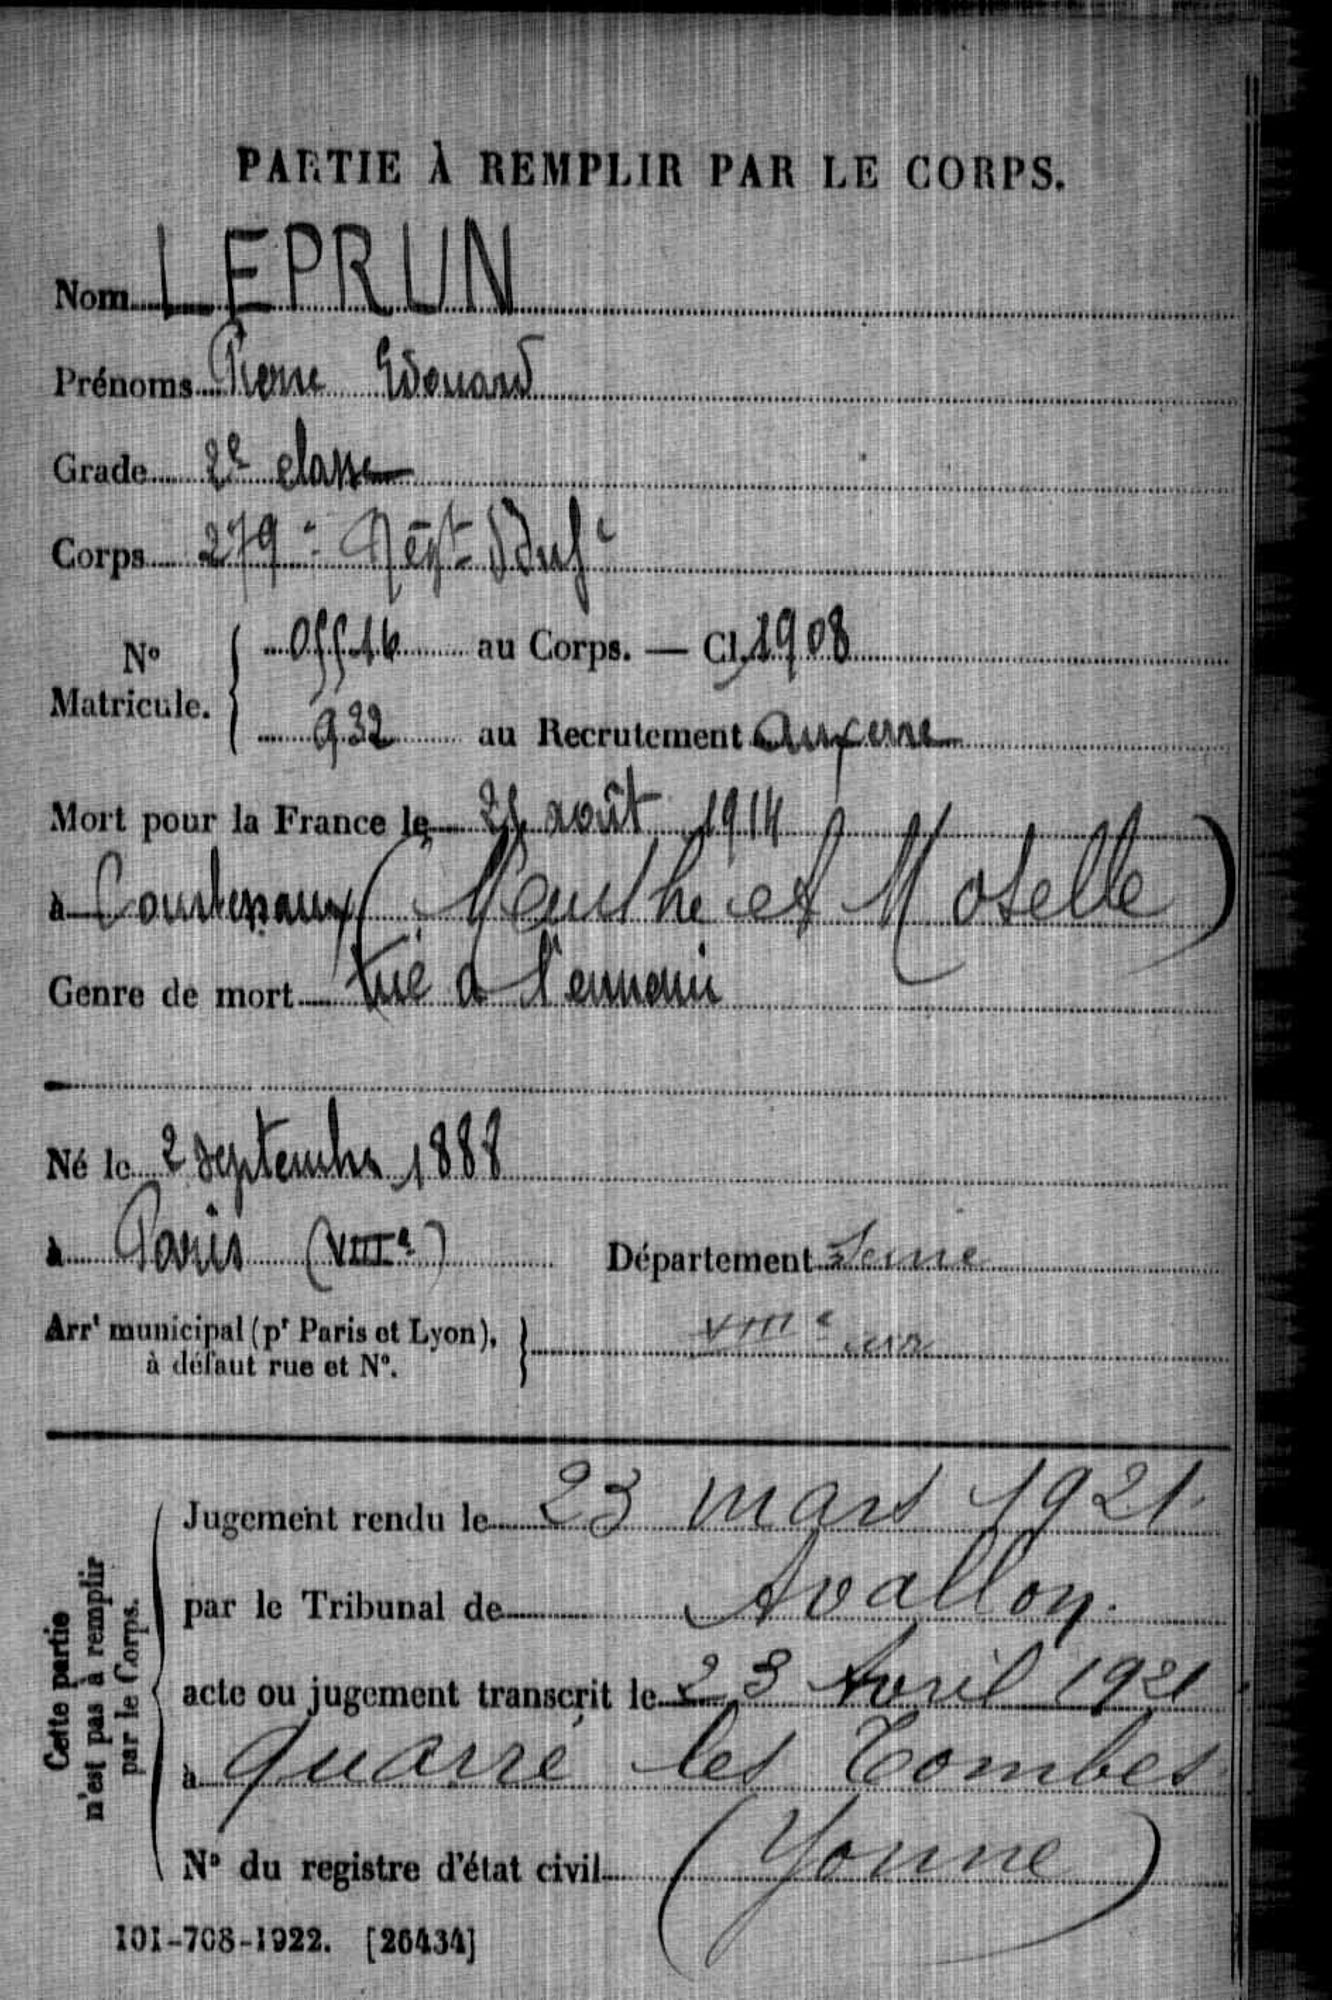 PARTIE À REMPLIR PAR LE CORPS.
Nom LEPRUN
Prénoms Pierre Edouard
Grade 2e classe
Corps 279e Régt d'Infie
No Matricule. 05516 au Corps. — Cl. 1908
932 au Recrutement Auxerre
Mort pour la France le août 1914
à Courbesaux (Meurthe et Moselle)
Genre de mort tué à l'ennemi
Né le 2 septembre 1888
à Paris (VIIIe) Département Seine
Arrt municipal (pr Paris et Lyon), à défaut rue et No. VIIIe arr
Cette partie n'est pas à remplir par le Corps.
Jugement rendu le 23 mars 1921.
par le Tribunal de Avallon.
acte ou jugement transcrit le 23 Avril 1921.
à Quarré les Tombes
No du registre d'état civil (Yonne)
101-708-1922. [26434]